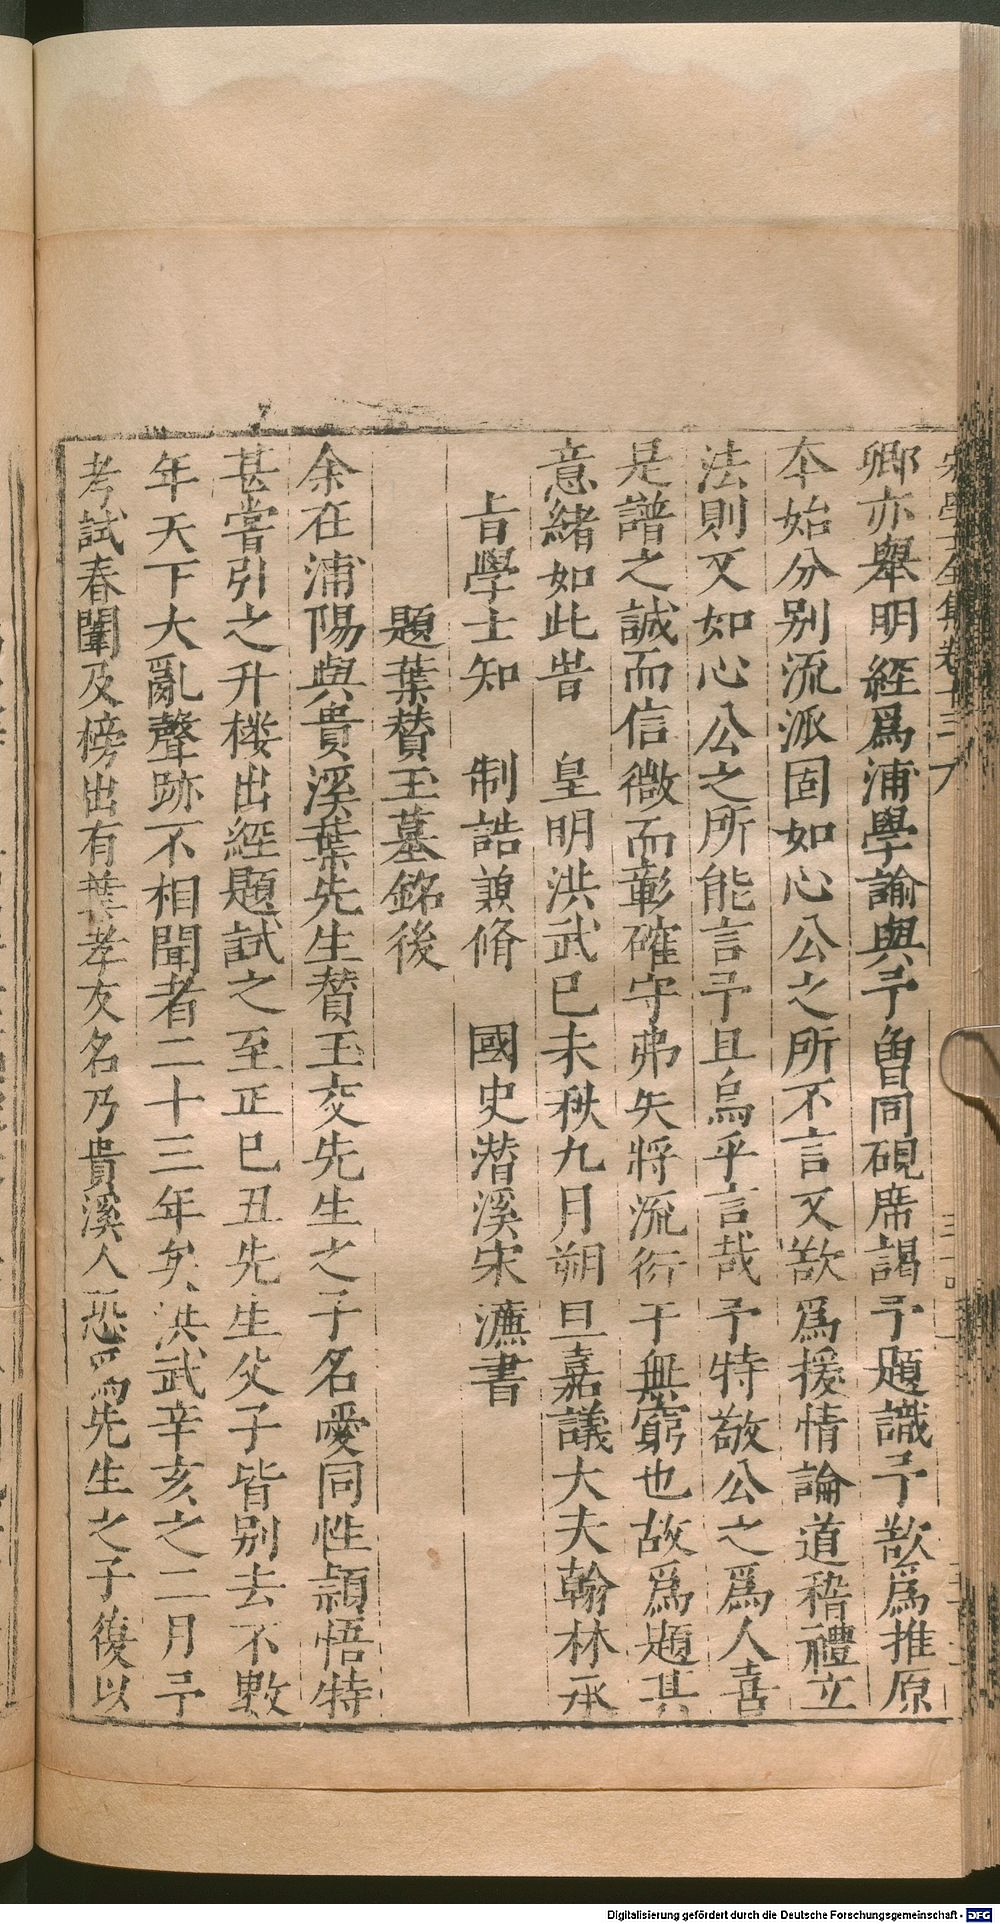 卿亦舉明經爲浦學諭與予魯同硯席謁予題識予歖爲推原
本始分别流派固如心公之所不言又歖爲援情論道稽禮立
法則又如心公之所能言予且烏乎言哉予特敬公之爲人喜
是譜之誠而信微而彰確守弗失將流衍于無窮也故爲題其
意緒如此旹　皇明洪武已未秋九月朔旦嘉議大夫翰林承
旨學士知　制誥兼脩　國史潜溪宋濂書
題葉賛玉墓銘後
余在浦陽與貴溪葉先生賛玉交先生之子名愛同性頴悟特
甚嘗引之升樓出經題試之至正已丑先生父子皆别去不數
年天下大亂聲跡不相聞者二十三年矣洪武辛亥之二月予
考試春闈及榜出有葉孝友名乃貴溪人恐爲先生之子復以
Digitalisierung gefördert durch die Deutsche Forschungsgemeinschaft - DFG